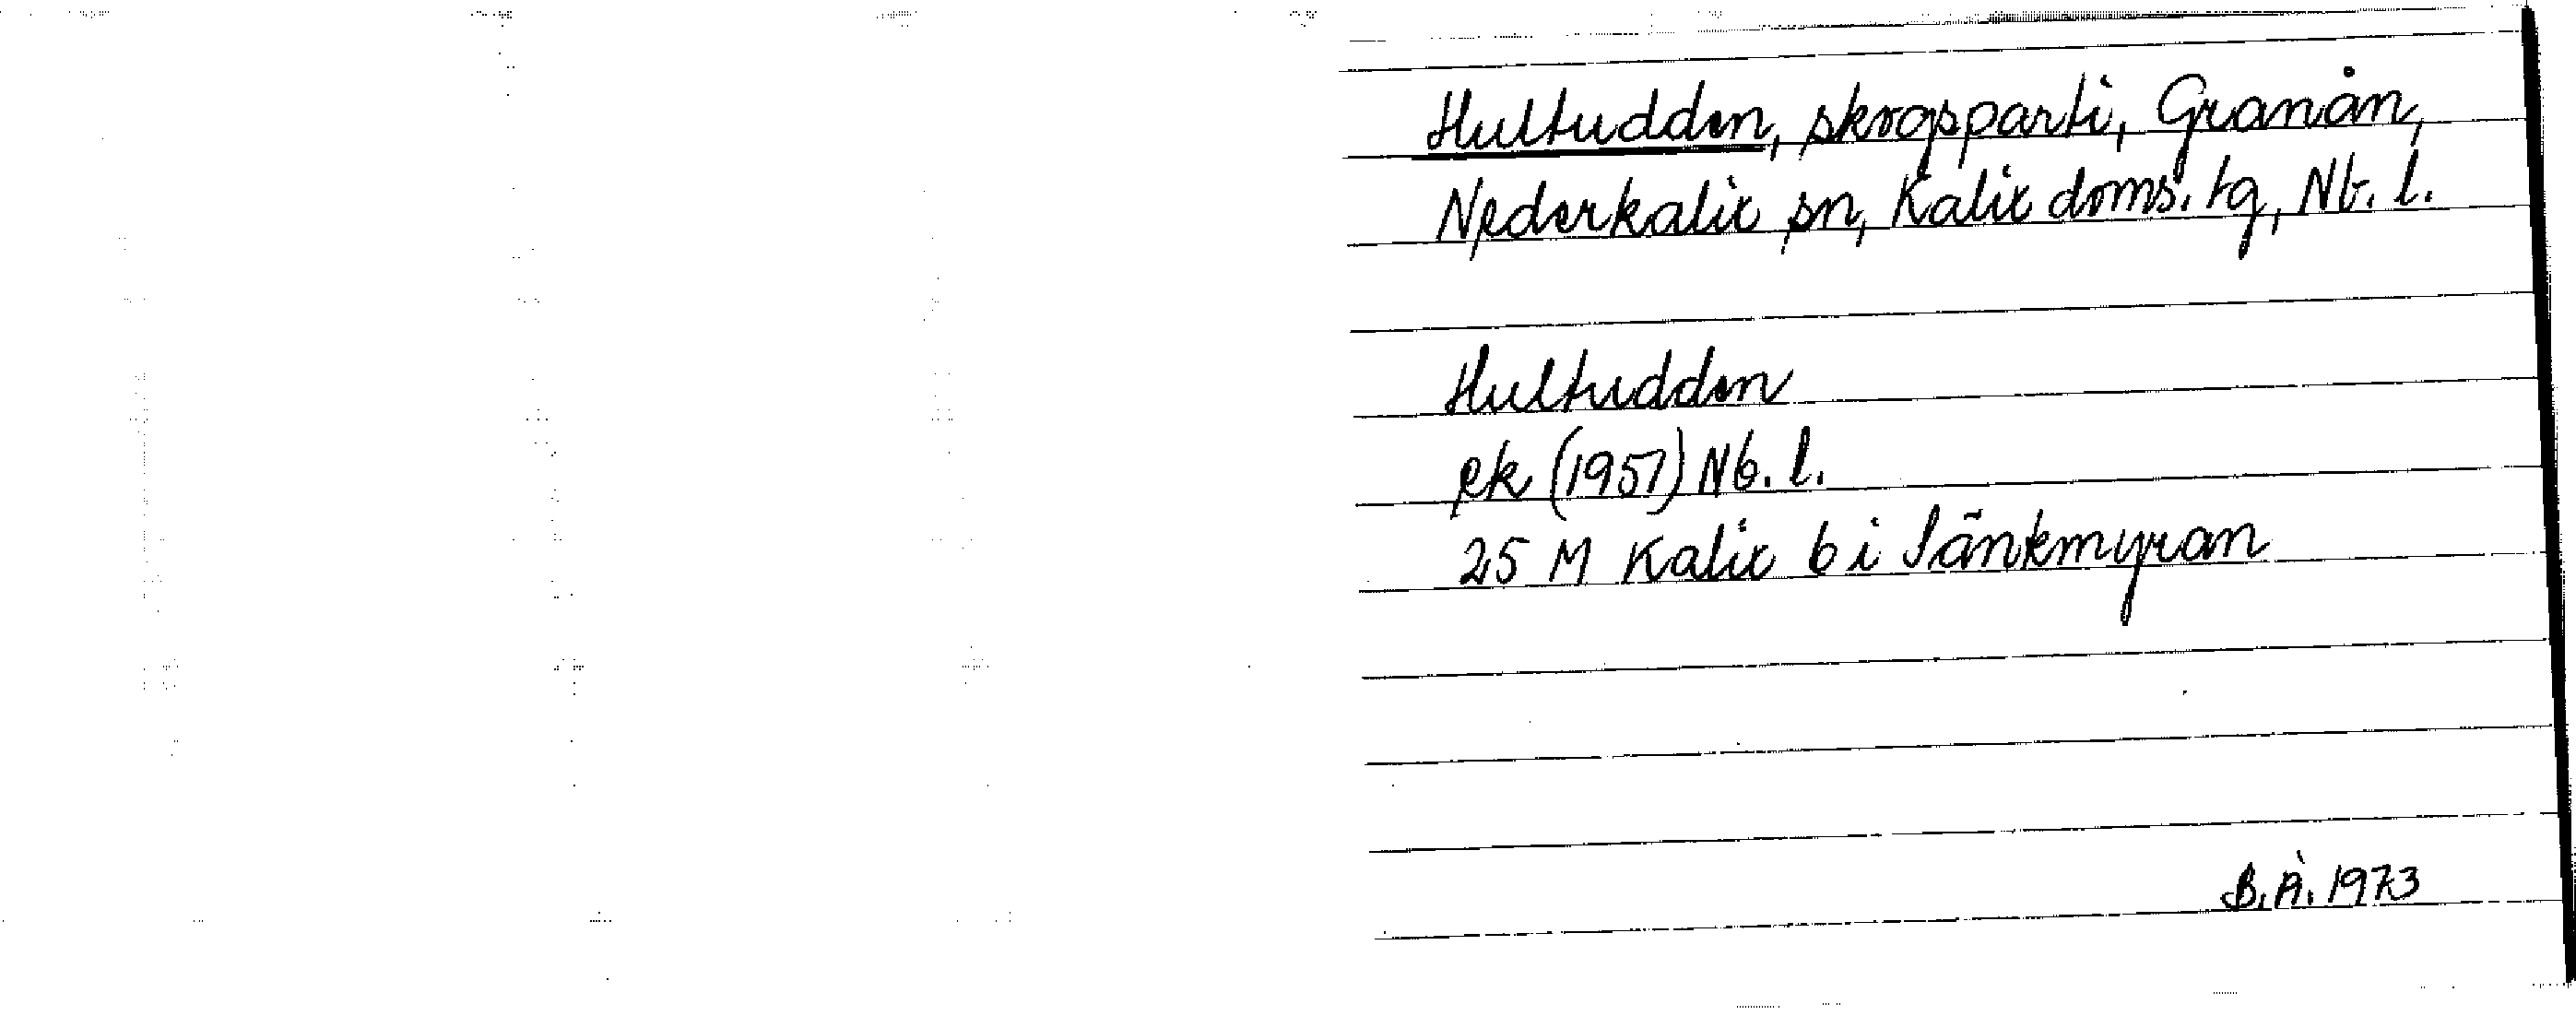 Hultudden, skogsparti, Granån,
Nederkalix sn, Kalix doms. tg, Nb. l.
Hultudden
ek (1957) Nb. l.
25 M Kalix 6 i Sänkmyran
B.Å. 1973